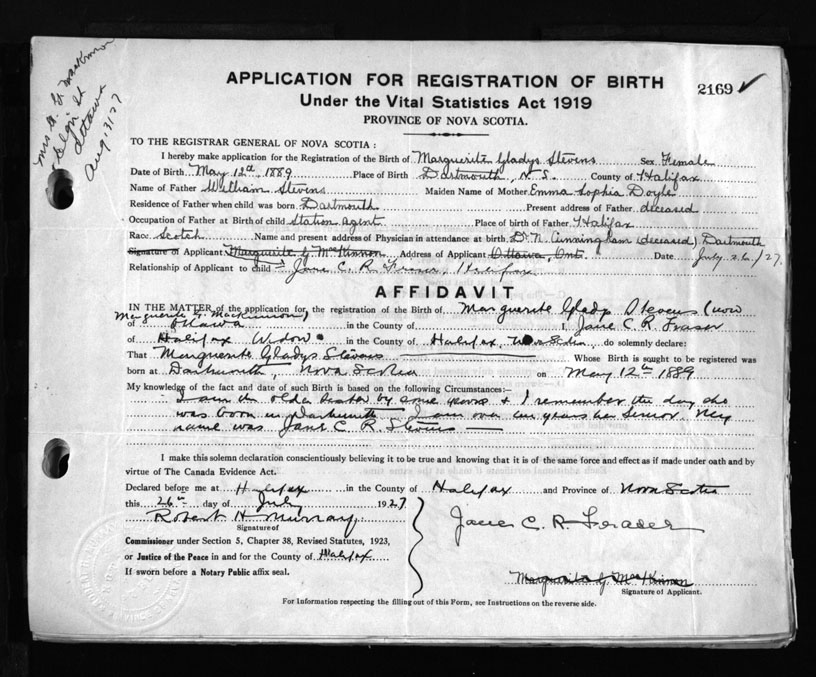 Mrs. G. MacKinnon
Elgin St
Ottawa
Aug. 3/27
APPLICATION FOR REGISTRATION OF BIRTH
2169 ✓
Under the Vital Statistics Act 1919
PROVINCE OF NOVA SCOTIA.
TO THE REGISTRAR GENERAL OF NOVA SCOTIA :
I hereby make application for the Registration of the Birth of Marguerite Gladys Stevens Sex Female
Date of Birth May 12th 1889 Place of Birth Dartmouth, N.S. County of Halifax
Name of Father William Stevens Maiden Name of Mother Emma Sophia Doyle
Residence of Father when child was born Dartmouth Present address of Father deceased
Occupation of Father at Birth of child Station Agent Place of birth of Father Halifax
Race Scotch Name and present address of Physician in attendance at birth Dr. N. Cunningham (deceased) Dartmouth
Signature of Applicant Marguerite G MacKinnon Address of Applicant Ottawa, Ont. Date July 26/27
Relationship of Applicant to child Jane C. R. Fraser, Halifax
AFFIDAVIT
IN THE MATTER of the application for the registration of the Birth of Marguerite Gladys Stevens (now
Marguerite G. MacKinnon)
of Ottawa in the County of I, Jane C. R. Fraser
of Halifax Widow in the County of Halifax, Nova Scotia, do solemnly declare:
That Marguerite Gladys Stevens Whose Birth is sought to be registered was
born at Dartmouth, Nova Scotia on May 12th 1889
My knowledge of the fact and date of such Birth is based on the following Circumstances:—
I am the older sister by some years & I remember the day she
was born in Dartmouth. I am over ten years her senior. My
name was Jane C. R. Stevens
I make this solemn declaration conscientiously believing it to be true and knowing that it is of the same force and effect as if made under oath and by
virtue of The Canada Evidence Act.
Declared before me at Halifax in the County of Halifax and Province of Nova Scotia
this 26th day of July 1927
Robert H Murray
Jane C. R. Fraser
Signature of
Commissioner under Section 5, Chapter 38, Revised Statutes, 1923,
or Justice of the Peace in and for the County of Halifax
If sworn before a Notary Public affix seal.
Marguerite G. MacKinnon
Signature of Applicant.
For Information respecting the filling out of this Form, see Instructions on the reverse side.